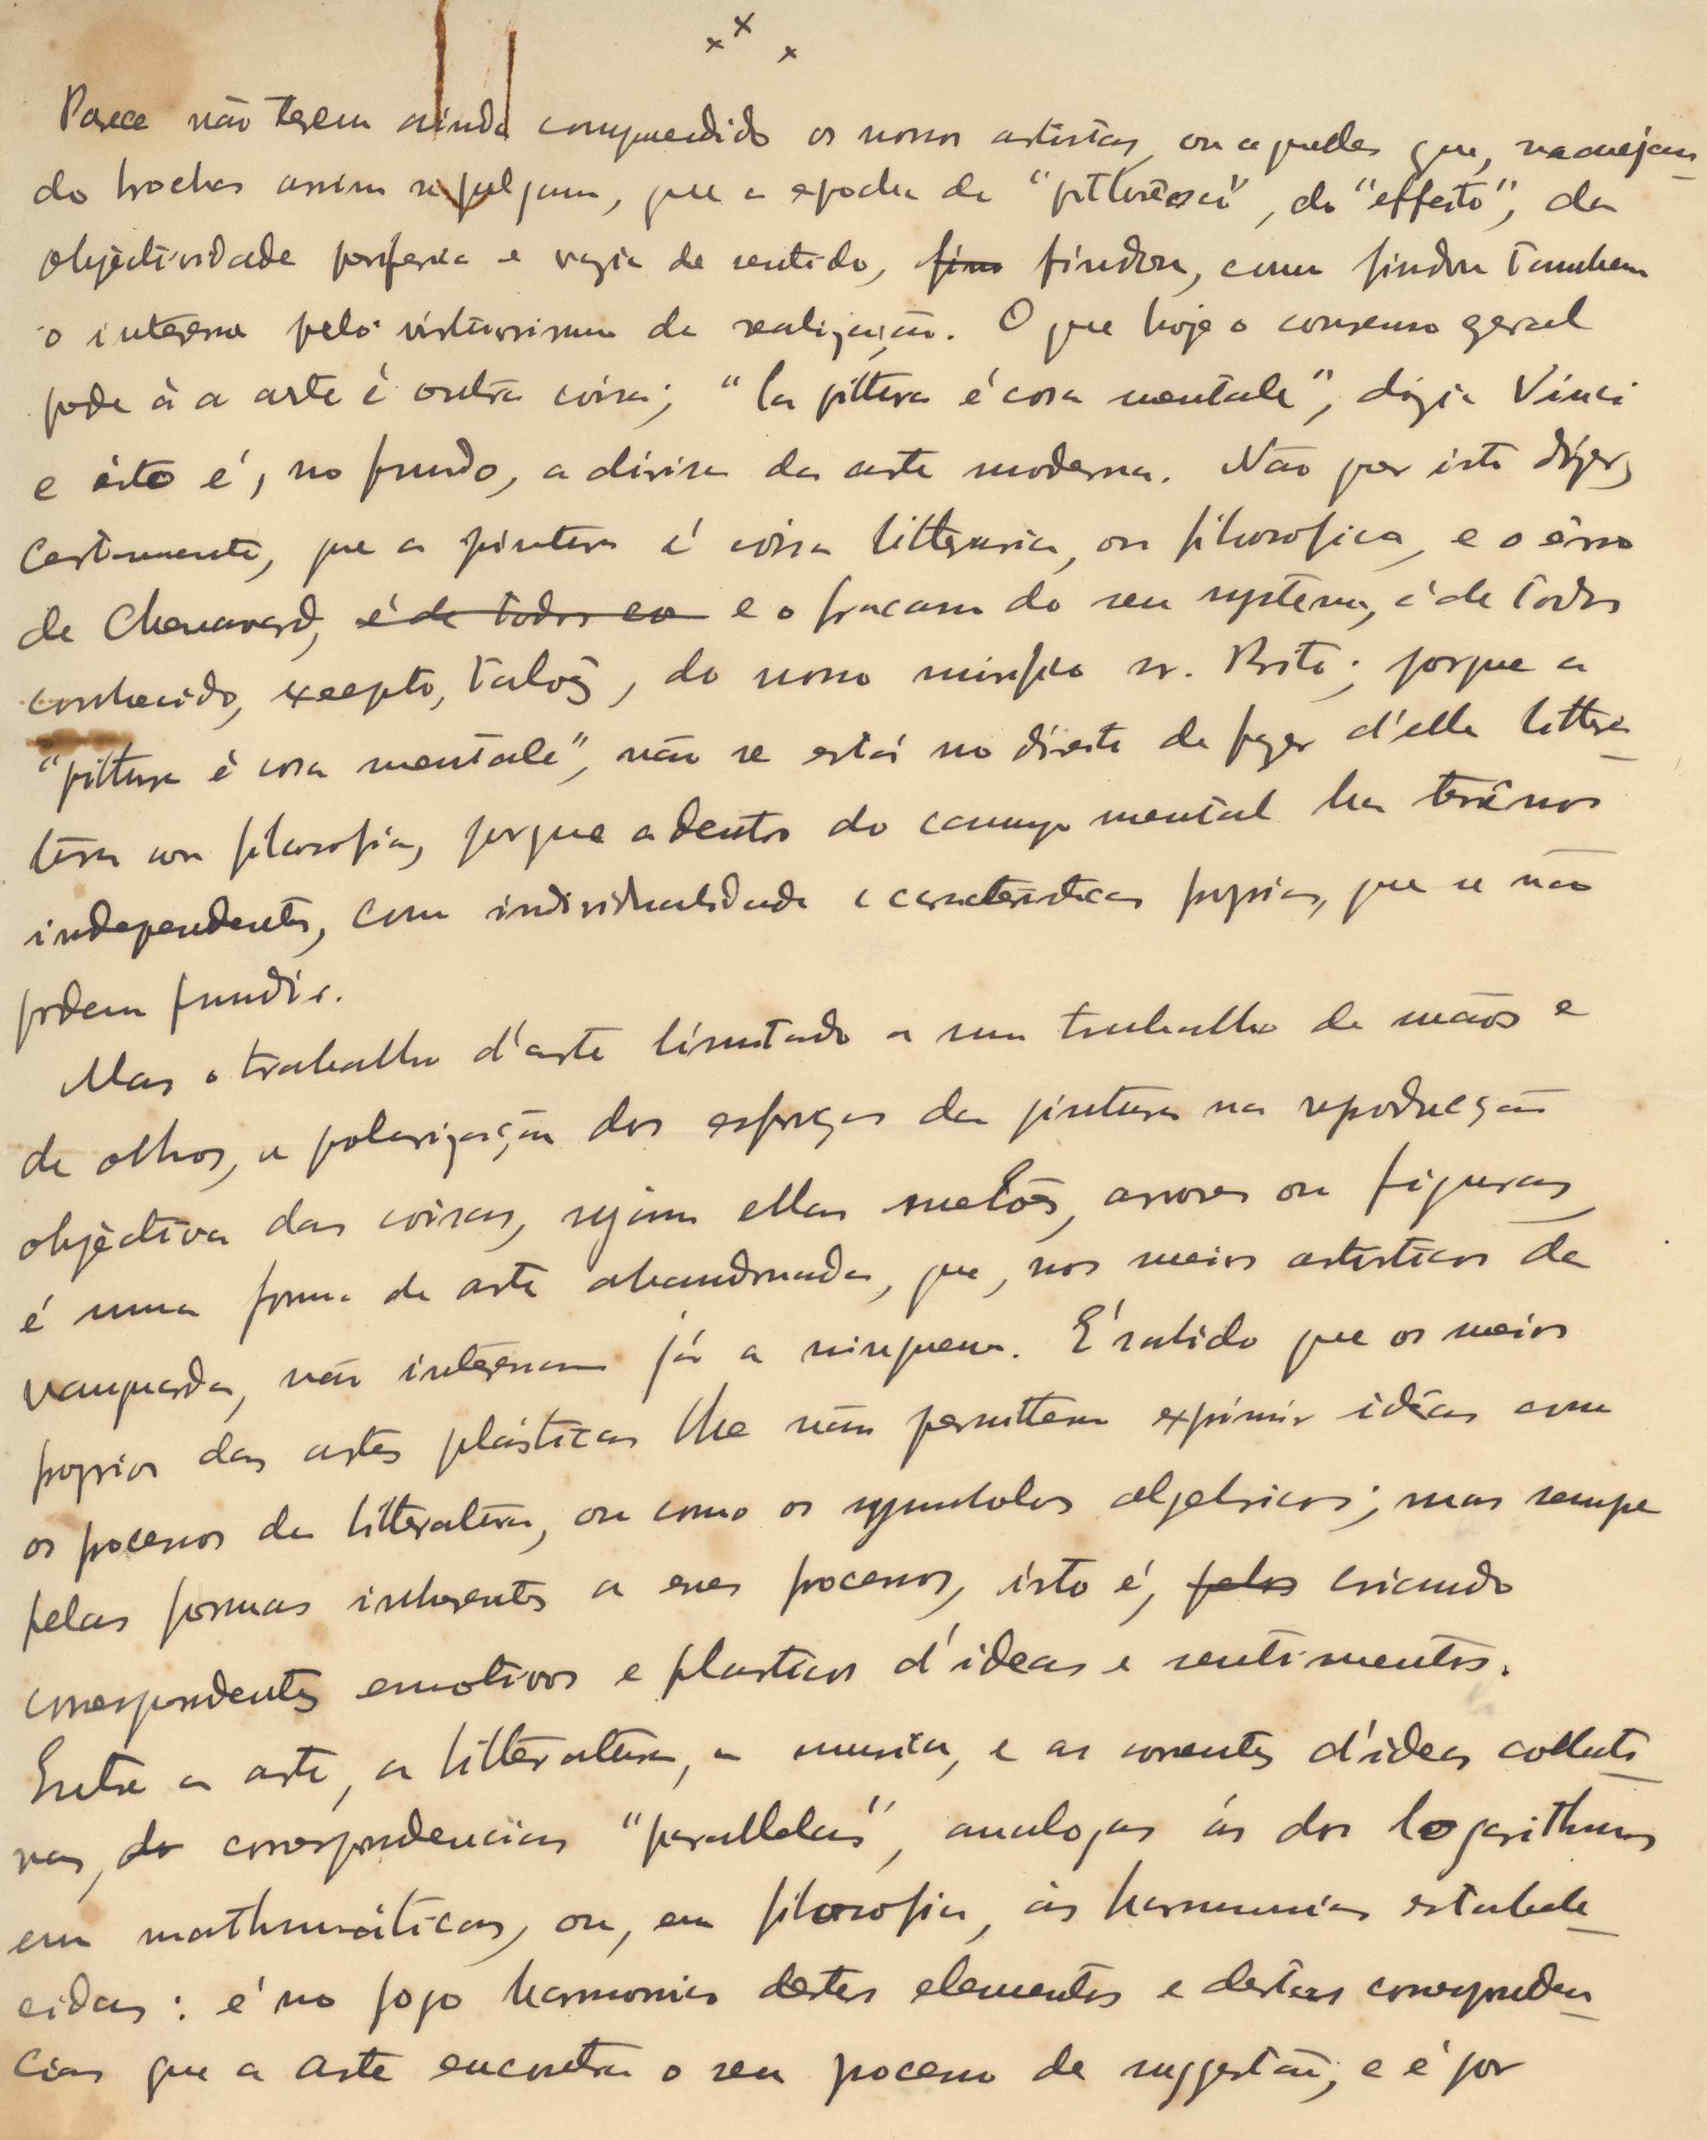 x x x
Parece não terem ainda comprendido os nossos artistas, ou aquelles que, manejan-
do brochas assim se julgam, que a epocha do "pittoresco", do "effeito", da
objèctividade periferica e vazia de sentido, findou, como findou tambem
o interesse pelo virtuosismo da realização. O que hoje o consenso geral
pede à a arte é outra coisa; "la pittura é cosa mentale", dizia Vinci
e isto é, no fundo, a divisa da arte moderna. Não quer isto dizer,
certamente, que a pintura é coisa litteraria, ou filosofica, e o êrro
de Chenavard, é de todos co e o fracasso do seu systema, é de todos
conhecido, excepto, talvez, do nosso sr. Brito; porque a
"pittura é cosa mentale", não se está no direito de fazer d'ella littera-
tura ou filosofia, porque adentro do campo mental ha terrenos
independentes, com individualidade e caracteristicas proprias, que se não
podem fundir.
Mas o trabalho d'arte limitado a um trabalho de mãos e
de olhos, a polarização dos esforços da pintura na reproducção
objèctiva das coisas, sejam ellas melões, arvores ou figuras,
é uma forma de arte abandonada, que, nos meios artisticos da
vanguarda, não interessam já a ninguem. É sabido que os meios
proprios das artes plásticas lhe não permittem exprimir idéas com
os processos da litteratura, ou como os symbolos algebricos; mas sempre
pelas formas inherentes a esses processos, isto é, pelos criando
correspondentes emotivos e plasticos d'ideas e sentimentos.
Entre a arte, a litteratura, a musica, e as correntes d'ideas collecti-
vas, correspondencias "parallelas", analogas ás dos logarithmos
em mathemáticas, ou, em filosofia, ás harmonias estabele-
cidas: é no jogo harmonico destes elementos e destas corresponden-
cias que a arte encontra o seu processo de suggestão, e é por